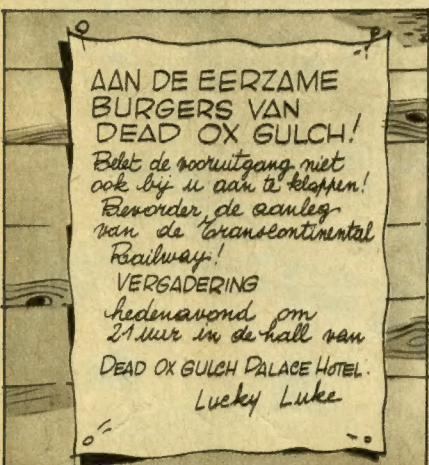 AAN DE EERZAME
BURGERS VAN
DEAD OX GULCH!
Belet de vooruitgang niet
ook bij u aan te kloppen!
Bevorder de aanleg
van de Transcontinental
Railway!
VERGADERING
hedenavond om
21 uur in de hall van
DEAD OX GULCH PALACE HOTEL.
Lucky Luke